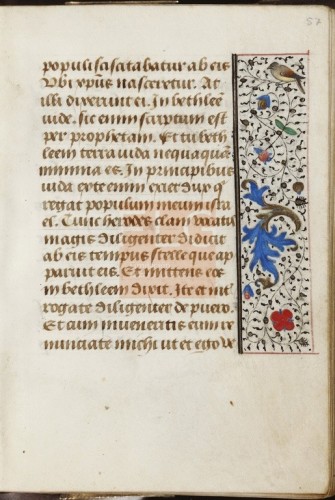 57
populi sciscitabatur ab eis
Ubi xpus nasceretur. At
illi dixerunt ei. In bethleē
iude. sic enim scriptum est
per prophetam. Et tu beth
leem terra iuda nequaquā
minima es. In principibus
iuda ex te enim exiet dux q̄
regat populum meum isra
el. Tunc herodes clam vocatis
magis diligenter didicit
ab eis tempus stelle que ap
paruit eis. Et mittens eos
in bethleem dixit. Ite et int
rogate diligenter de puero.
Et cum inueneritis eum re
nunciate michi ut et ego ve